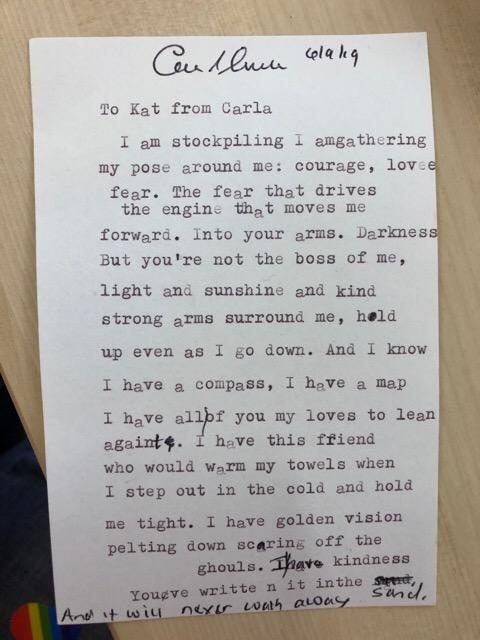 6/9/19
To Kat from Carla
I am stockpiling I amgathering
my pose around me: courage, lovee
fear. The fear that drives
the engine that moves me
forward. Into your arms. Darkness
But you're not the boss of me,
light and sunshine and kind
strong arms surround me, hold
up even as I go down. And I know
I have a compass, I have a map
I have all of you my loves to lean
against. I have this friend
who would warm my towels when
I step out in the cold and hold
me tight. I have golden vision
pelting down scaring off the
ghouls. I have kindness
Youve writte n it inthe sand.
And it will never wash away